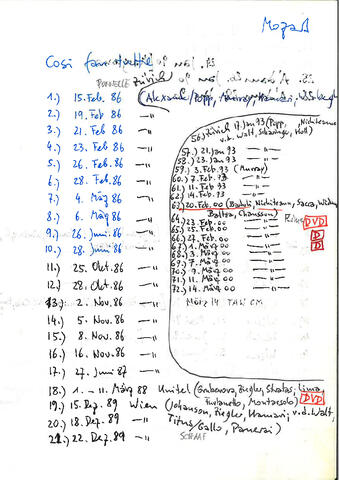 Mozart
Cosi fan tutte
PONNELLE Zürich
1.) 15. Feb. 86 (Alexander, Popp, Murray,
2.) 19. Feb 86 —"—
3.) 21. Feb 86 —"—
4.) 23. Feb 86 —"—
5.) 26. Feb. 86 —"—
6.) 28. Feb. 86 —"—
7.) 4. März 86 —"—
8.) 6. März 86 —"—
9.) 26. Juni 86 —"—
10.) 28. Juni 86 —"—
11.) 25. Okt. 86 —"—
12.) 28. Okt. 86 —"—
13.) 2. Nov. 86 —"—
14.) 5. Nov. 86 —"—
15.) 8. Nov. 86 —"—
16.) 16. Nov. 86 —"—
17.) 27. Juni 87 —"—
18.) 1. – 11. März 88 Unitel (Gruberova, Ziegler, Stratas, Lima,
Furlanetto, Montarsolo) DVD
19.) 15. Dez. 89 Wien (Johanson, Ziegler, v.d. Walt,
20.) 18. Dez. 89 —"— Titus/Gallo, Panerai)
21.) 22. Dez. 89 —"— SCHAAF
56.) Zürich 17. Jan 93 (Popp, Nikiteanu
v.d. Walt, Scharinger, Holl)
57.) 21. Jan 93 —"—
58.) 23. Jan. 93 —"—
59.) 3. Feb. 93 (Murray)
60.) 7. Feb. 93 —"—
61.) 11. Feb. 93 —"—
62.) 14. Feb. 93 —"—
63.) 20. Feb. 00 (Bartoli, Nikiteanu, Sacca, Widmer
Baltsa, Chausson)
64.) 23. Feb 00 —"— DVD
65.) 25. Feb. 00 —"—
66.) 27. Feb. 00 —"— D
67.) 1. März 00 —"— D
68.) 3. März 00 —"—
69.) 7. März 00 —"—
70.) 9. März 00 —"—
71.) 11. März 00 —"—
72.) 14. März 00 —"—
MÄRZ 14 TADW CM